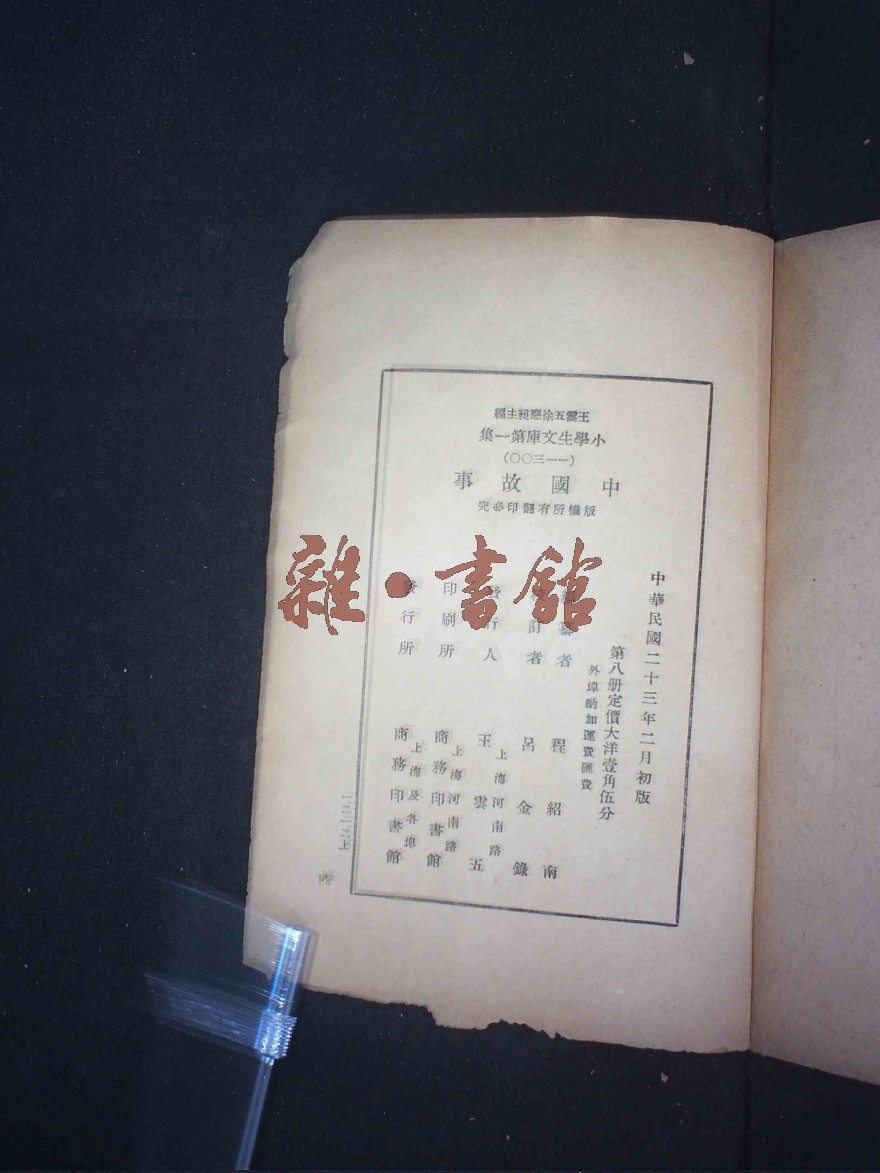 王雲五徐應昶主編
小學生文庫第一集
(一—三〇〇)
中國故事
版權所有翻印必究
中華民國二十三年二月初版
第八册定價大洋壹角伍分
外埠酌加運費匯費
編纂者 程紹南
校訂者 呂金錄
發行人 王雲五
上海河南路
印刷所 商務印書館
上海河南路
發行所 商務印書館
上海及各埠
雜·書館